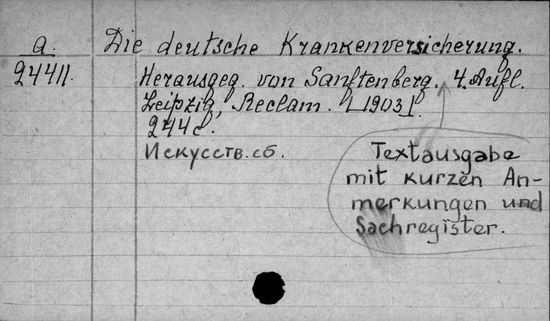 a. Die deutsche Krankenversicherung.
24411. Herausgeg. von Sanftenberg. 4. Aufl.
Leipzig, Reclam. [1903].
244 c.
Искусств. сб.
Textausgabe
mit kurzen An-
merkungen und
Sachregister.